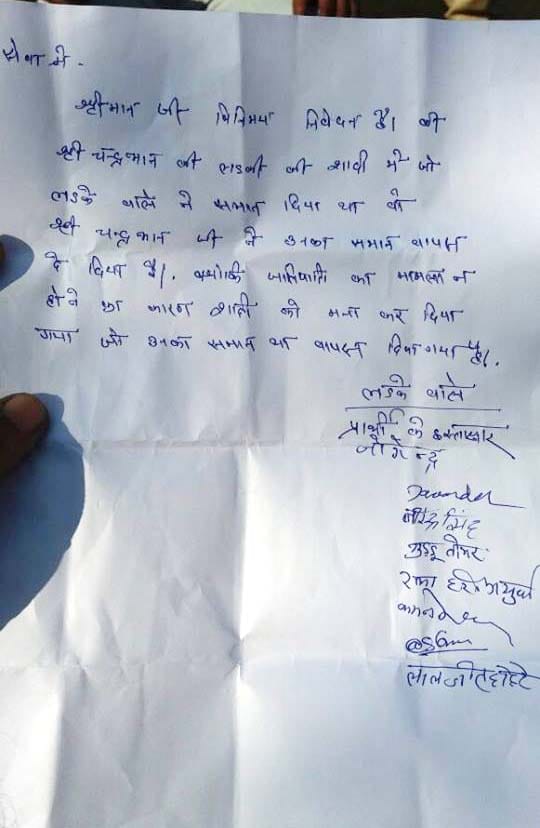 सेवा में -
श्रीमान जी विनिमय निवेदन है। की
श्री चन्द्रभान की लडकी की शादी में जो
लडके वाले ने समान दिया था वो
श्री चन्द्रभान जी ने उनका समान वापस
दे दिया है/. क्योकि जातिपाति का मामला न
होने का कारण शादी को मना कर दिया
गया जो उनका समान था वापस दिया गया है/.
लडके वाले
प्रार्थी के हस्ताक्षर
जोगेन्द्र
Davender
सिंह
गुड्डू तोमर
लालजीत